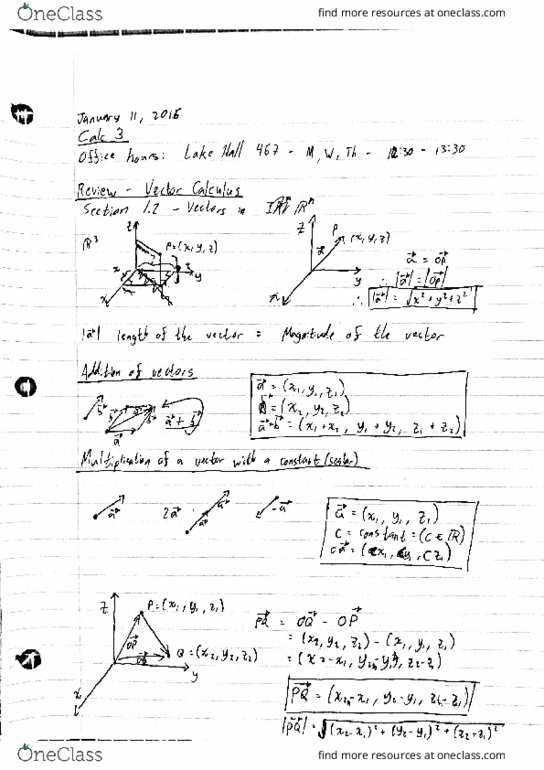 OneClass find more resources at oneclass.com
January 11, 2016
Calc 3
Office hours: Lake Hall 467 - M, W, Th - 12:30 - 13:30
Review - Vector Calculus
Section 1.2 - Vectors in ℝⁿ
ℝ³
z
P=(x,y,z)
x
y
z
P
(x,y,z)
a⃗
y
x
a⃗ = OP⃗
∴ |a⃗| = |OP⃗|
∴ |a⃗| = √x²+y²+z²
|a⃗| length of the vector = Magnitude of the vector
Addition of vectors
b⃗
a⃗
b⃗
a⃗ + b⃗
a⃗ = (x₁, y₁, z₁)
b⃗ = (x₂, y₂, z₂)
a⃗+b⃗ = (x₁+x₂, y₁+y₂, z₁+z₂)
Multiplication of a vector with a constant (scalar)
a⃗
2a⃗
a⃗
a⃗
-a⃗
a⃗ = (x₁, y₁, z₁)
c = constant = (c ∈ ℝ)
ca⃗ = (cx₁, cy₁, cz₁)
z
P=(x₁, y₁, z₁)
OP⃗
OQ⃗
Q=(x₂, y₂, z₂)
y
x
PQ⃗ = OQ⃗ - OP⃗
= (x₂, y₂, z₂) - (x₁, y₁, z₁)
= (x₂-x₁, y₂-y₁, z₂-z₁)
PQ⃗ = (x₂-x₁, y₂-y₁, z₂-z₁)
|PQ⃗| = √(x₂-x₁)² + (y₂-y₁)² + (z₂-z₁)²
OneClass find more resources at oneclass.com